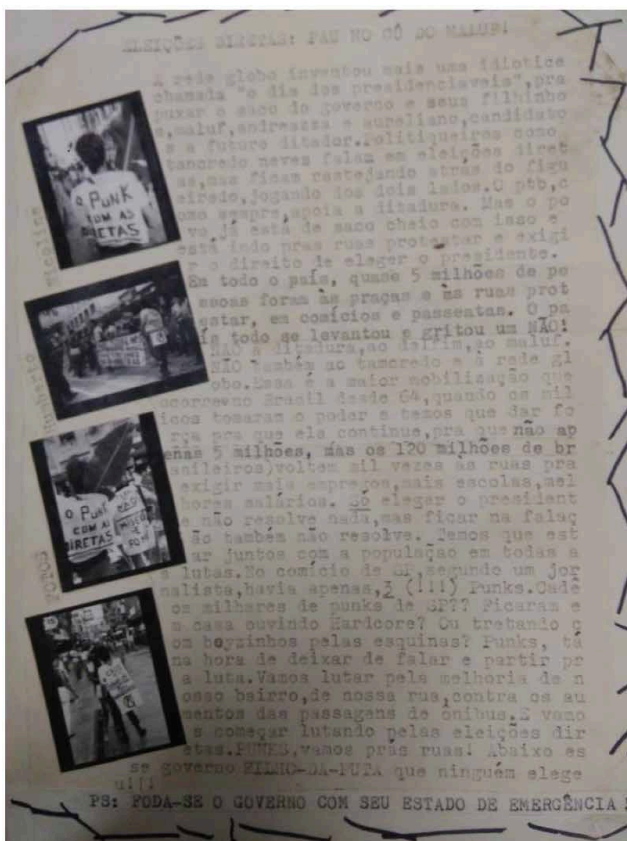 ELEIÇÕES DIRETAS: PAU NO CÚ DO MALUF!
A rede globo inventou mais uma idiotice
chamada "o dia dos presidenciaveis", pra
puxar o saco do governo e seus filhinho
s,maluf,andreazza e aureliano,candidato
s a futuro ditador.Politiqueiros como
tancredo neves falam em eleições diret
as,mas ficam rastejando atras do figu
eiredo,jogando dos dois lados.O ptb,c
omo sempre,apoia a ditadura. Mas o po
vo já está de saco cheio com isso e
está indo pras ruas protestar e exigi
r o direito de eleger o presidente.
Em todo o país, quase 5 milhões de pe
ssoas foram às praças e às ruas prot
estar, em comícios e passeatas. O pa
ís todo se levantou e gritou um NÃO!
NÃO à ditadura,ao delfim,ao maluf.
NÃO também ao tancredo e à rede gl
obo.Essa é a maior mobilização que
ocorreu no Brasil desde 64,quando os mil
icos tomaram o poder e temos que dar fo
rça pra que ela continue,pra que não ap
enas 5 milhões, mas os 120 milhões de br
asileiros)voltem mil vezes às ruas pra
exigir mais empregos,mais escolas,mel
hores salários. Só eleger o president
e não resolve nada,mas ficar na falaç
ão também não resolve. Temos que est
ar juntos com a população em todas a
s lutas.No comício de SP,segundo um jor
nalista,havia apenas,3 (!!!) Punks.Cadê
os milhares de punks de SP?? Ficaram e
m casa ouvindo Hardcore? Ou tretando c
om boyzinhos pelas esquinas? Punks, tá
na hora de deixar de falar e partir pr
a luta.Vamos lutar pela melhoria de n
osso bairro,de nossa rua,contra os au
mentos das passagens de ônibus.E vamo
s começar lutando pelas eleições dir
etas.PUNKS,vamos pras ruas! Abaixo es
se governo FILHO-DA-PUTA que ninguém elege
u!!!
PS: FODA-SE O GOVERNO COM SEU ESTADO DE EMERGÊNCIA
FOTOS
O PUNK
COM AS
DIRETAS
O PUNK
COM AS
DIRETAS